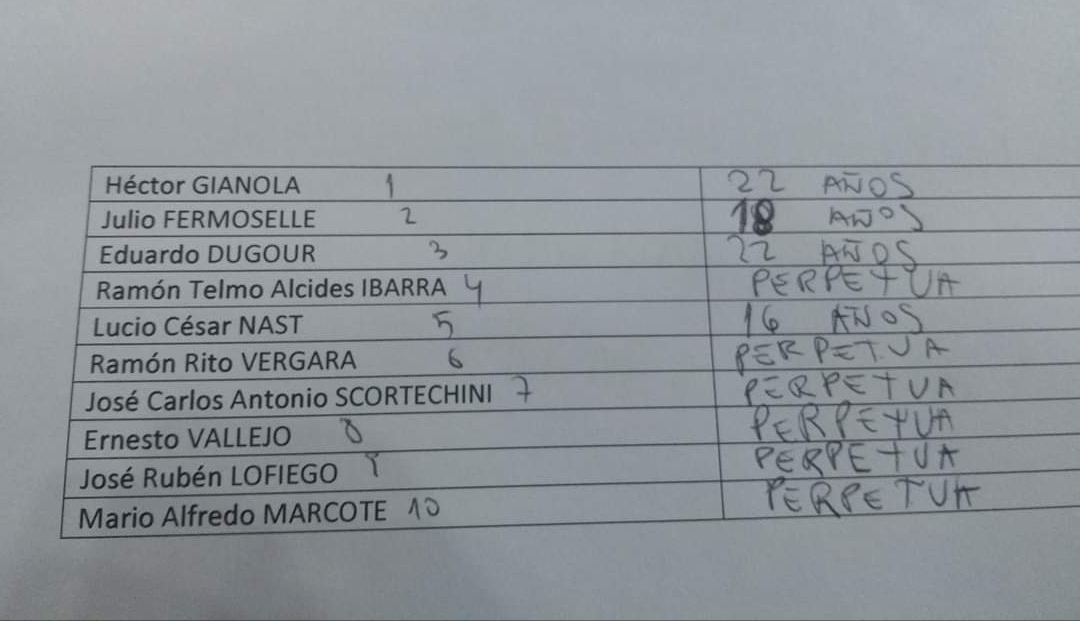 Héctor GIANOLA 1 22 AÑOS
Julio FERMOSELLE 2 18 AÑOS
Eduardo DUGOUR 3 22 AÑOS
Ramón Telmo Alcides IBARRA 4 PERPETUA
Lucio César NAST 5 16 AÑOS
Ramón Rito VERGARA 6 PERPETUA
José Carlos Antonio SCORTECHINI 7 PERPETUA
Ernesto VALLEJO 8 PERPETUA
José Rubén LOFIEGO 9 PERPETUA
Mario Alfredo MARCOTE 10 PERPETUA